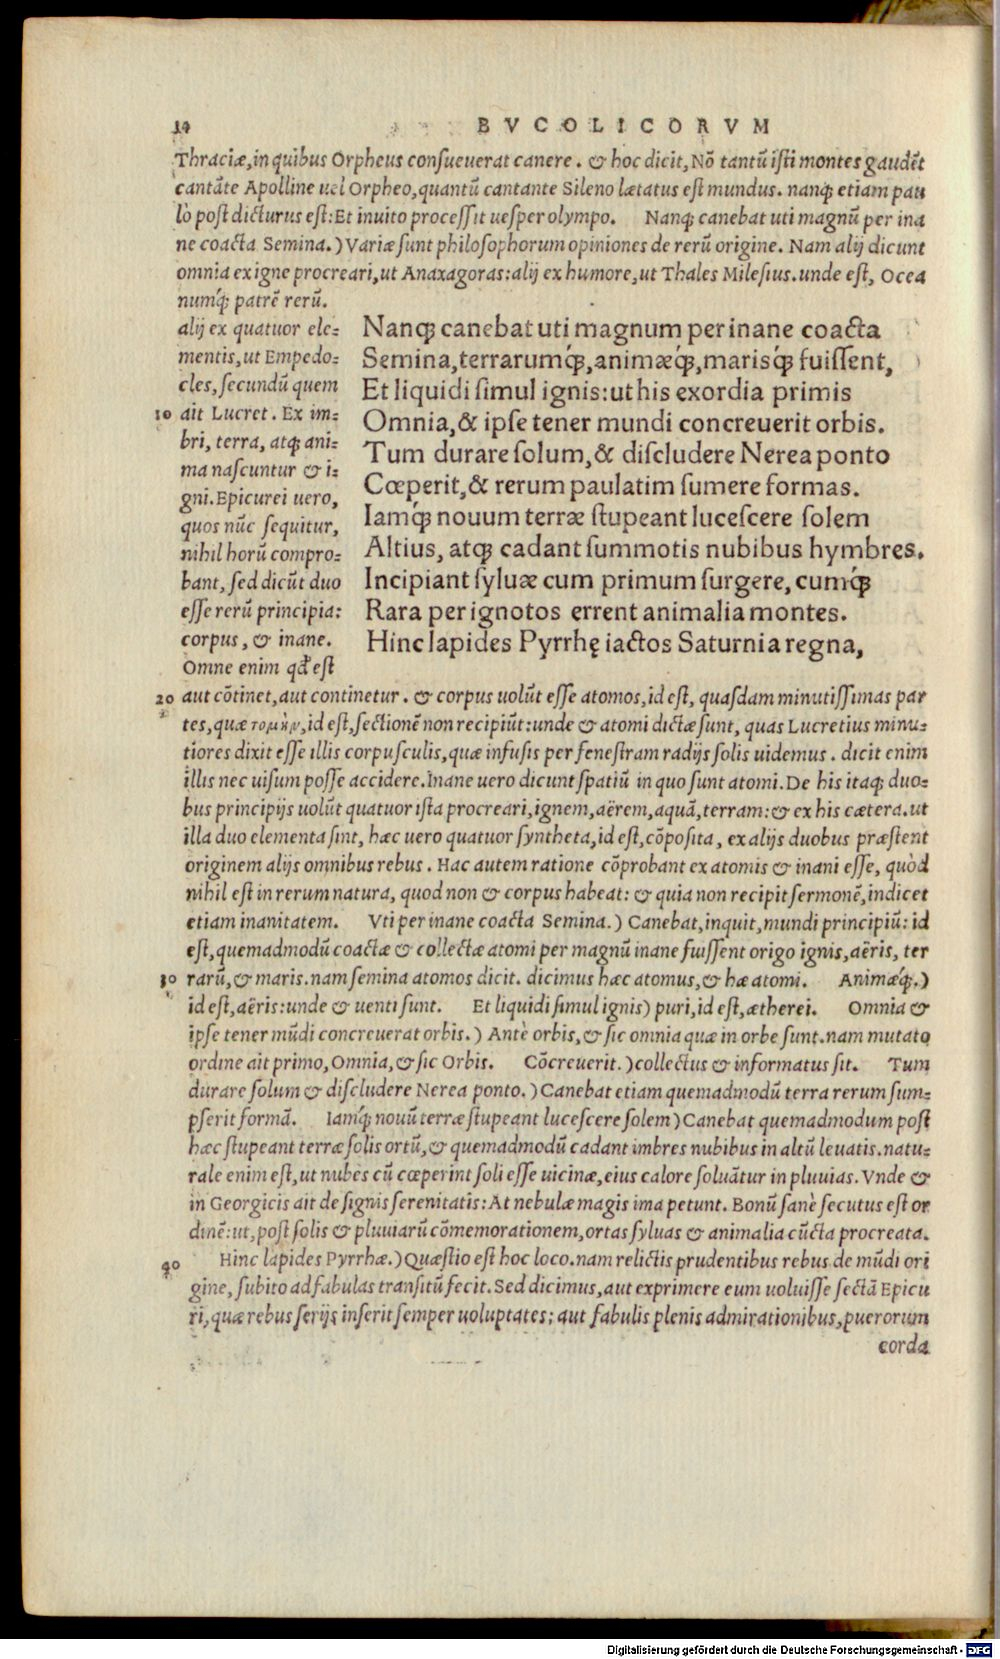 14 BVCOLICORVM
Thraciæ,in quibus Orpheus consueuerat canere. & hoc dicit, Nō tantū isti montes gaudēt
cantāte Apolline uel Orpheo, quantū cantante Sileno lætatus est mundus. nanq; etiam pau
lò post dicturus est: Et inuito processit uesper olympo. Nanq; canebat uti magnū per ina
ne coacta Semina.) Variæ sunt philosophorum opiniones de rerū origine. Nam alij dicunt
omnia ex igne procreari, ut Anaxagoras: alij ex humore, ut Thales Milesius. unde est, Ocea
numq́; patrē rerū.
alij ex quatuor ele-
mentis, ut Empedo-
cles, secundū quem
10 ait Lucret. Ex im-
bri, terra, atq; ani-
ma nascuntur & i-
gni. Epicurei uero,
quos nūc sequitur,
nihil horū compro-
bant, sed dicūt duo
esse rerū principia:
corpus, & inane.
Omne enim qđ est
Nanq; canebat uti magnum per inane coacta
Semina, terrarumq́;, animæq́;, marisq́; fuissent,
Et liquidi simul ignis: ut his exordia primis
Omnia, & ipse tener mundi concreuerit orbis.
Tum durare solum, & discludere Nerea ponto
Cœperit, & rerum paulatim sumere formas.
Iamq́; nouum terræ stupeant lucescere solem
Altius, atq; cadant summotis nubibus hymbres.
Incipiant syluæ cum primum surgere, cumq́;
Rara per ignotos errent animalia montes.
Hinc lapides Pyrrhę iactos Saturnia regna,
20 aut cōtinet, aut continetur. & corpus uolūt esse atomos, id est, quasdam minutissimas par
tes, quæ τομὴν, id est, sectionē non recipiūt: unde & atomi dictæ sunt, quas Lucretius minu-
tiores dixit esse illis corpusculis, quæ infusis per fenestram radijs solis uidemus. dicit enim
illis nec uisum posse accidere. Inane uero dicunt spatiū in quo sunt atomi. De his itaq; duo-
bus principijs uolūt quatuor ista procreari, ignem, aërem, aquā, terram: & ex his cætera. ut
illa duo elementa sint, hæc uero quatuor syntheta, id est, cōposita, ex alijs duobus præstent
originem alijs omnibus rebus. Hac autem ratione cōprobant ex atomis & inani esse, quòd
nihil est in rerum natura, quod non & corpus habeat: & quia non recipit sermonē, indicet
etiam inanitatem. Vti per inane coacta Semina.) Canebat, inquit, mundi principiū: id
est, quemadmodū coactæ & collectæ atomi per magnū inane fuissent origo ignis, aëris, ter
30 rarū, & maris. nam semina atomos dicit. dicimus hæc atomus, & hæ atomi. Animæq́;.)
id est, aëris: unde & uenti sunt. Et liquidi simul ignis) puri, id est, ætherei. Omnia &
ipse tener mūdi concreuerat orbis.) Antè orbis, & sic omnia quæ in orbe sunt. nam mutato
ordine ait primo, Omnia, & sic Orbis. Cōcreuerit.) collectus & informatus sit. Tum
durare solum & discludere Nerea ponto.) Canebat etiam quemadmodū terra rerum sum-
pserit formā. Iamq́; nouū terræ stupeant lucescere solem) Canebat quemadmodum post
hæc stupeant terræ solis ortū, & quemadmodū cadant imbres nubibus in altū leuatis. natu-
rale enim est, ut nubes cū cœperint soli esse uicinæ, eius calore soluātur in pluuias. Vnde &
in Georgicis ait de signis serenitatis: At nebulæ magis ima petunt. Bonū sanè secutus est or
dinē: ut, post solis & pluuiarū cōmemorationem, ortas syluas & animalia cūcta procreata.
40 Hinc lapides Pyrrhæ.) Quæstio est hoc loco. nam relictis prudentibus rebus de mūdi ori
gine, subito ad fabulas transitū fecit. Sed dicimus, aut exprimere eum uoluisse sectā Epicu
ri, quæ rebus serijs inserit semper uoluptates; aut fabulis plenis admirationibus, puerorum
corda
Digitalisierung gefördert durch die Deutsche Forschungsgemeinschaft - DFG